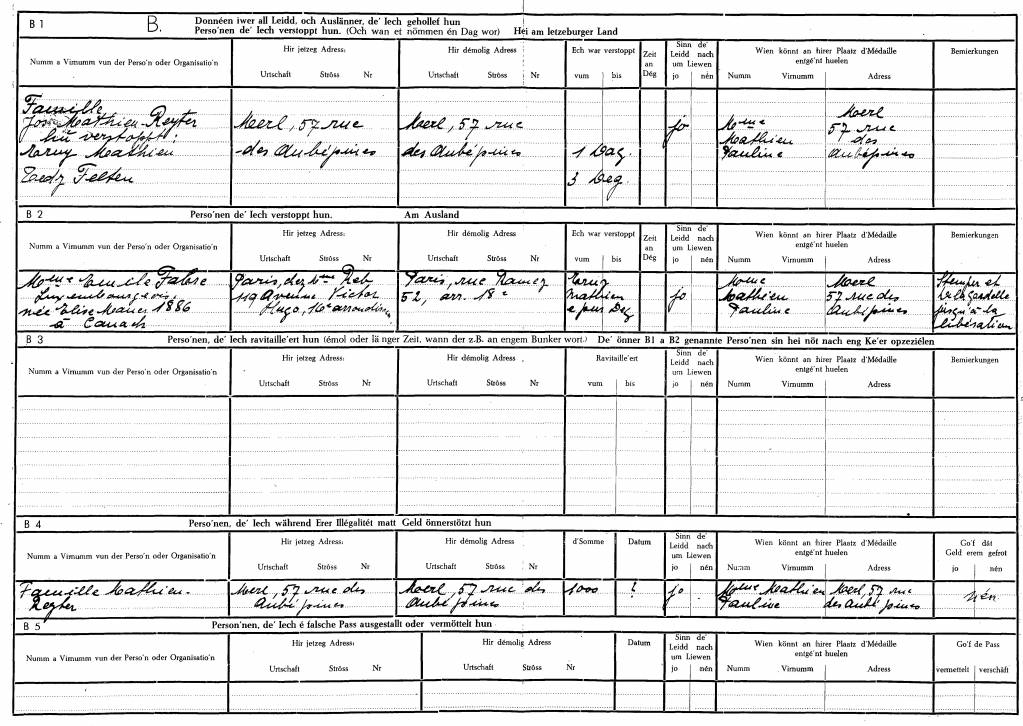 B 1 B. Donnéen iwer all Leidd, och Auslänner, de' Iech gehollef hun
Perso'nen de' Iech verstoppt hun. (Och wan et nömmen én Dag wor) Hei am letzeburger Land
Numm a Virnumm vun der Perso'n oder Organisatio'n
Hir jetzeg Adress:
Urtschaft Ströss Nr
Hir démolig Adress
Urtschaft Ströss Nr
Ech war verstoppt
vum bis
Zeit an Dég
Sinn de' Leidd nach um Liewen
jo nén
Wien könnt an hirer Plaatz d'Médaille entgé'nt huelen
Numm Virnumm Adress
Bemierkungen
Famille
Mathieu-Reyter
hu verstoppt:
Mathieu
Felten
Merl, 57 rue
des Aubépines
Merl, 57 rue
des Aubépines
1 Dag.
3 Deg.
jo
Mme
Mathieu
Pauline
Merl
57 rue
des
Aubépines
B 2 Perso'nen de' Iech verstoppt hun. Am Ausland
Numm a Virnumm vun der Perso'n oder Organisatio'n
Hir jetzeg Adress:
Urtschaft Ströss Nr
Hir démolig Adress
Urtschaft Ströss Nr
Ech war verstoppt
vum bis
Zeit an Dég
Sinn de' Leidd nach um Liewen
jo nén
Wien könnt an hirer Plaatz d'Médaille entgé'nt huelen
Numm Virnumm Adress
Bemierkungen
Mme Emile
Luxembourgeoise
née Elise 1886
à Canach
Paris,
119 Avenue Victor
Hugo, 16e
Paris, rue
52, arr. 18e
Mathieu
e puer Deg
jo
Mme
Mathieu
Pauline
Merl
57 rue des
Aubépines
Stemper et
jusqu'à la
libération
B 3 Perso'nen, de' Iech ravitaille'ert hun (émol oder länger Zeit, wann der z.B. an engem Bunker wort.) De' önner B1 a B2 genannte Perso'nen sin hei nöt nach eng Ke'er opzeziélen
Numm a Virnumm vun der Perso'n oder Organisatio'n
Hir jetzeg Adress:
Urtschaft Ströss Nr
Hir démolig Adress
Urtschaft Ströss Nr
Ravitaille'ert
vum bis
Sinn de' Leidd nach um Liewen
jo nén
Wien könnt an hirer Plaatz d'Médaille entgé'nt huelen
Numm Virnumm Adress
Bemierkungen
B 4 Perso'nen, de' Iech während Erer Illégalitét matt Geld önnerstötzt hun
Numm a Virnumm vun der Perso'n oder Organisatio'n
Hir jetzeg Adress:
Urtschaft Ströss Nr
Hir démolig Adress
Urtschaft Ströss Nr
d'Somme
Datum
Sinn de' Leidd nach um Liewen
jo nén
Wien könnt an hirer Plaatz d'Médaille entgé'nt huelen
Numm Virnumm Adress
Go'f dät Geld erem gefrot
jo nén
Famille Mathieu-
Reyter
Merl, 57 rue des
Aubépines
Merl, 57 rue des
Aubépines
1000
?
jo
Mme Mathieu
Pauline
Merl, 57 rue
des Aubépines
nén
B 5 Person'nen, de' Iech é falsche Pass ausgestallt oder vermöttelt hun
Numm a Virnumm vun der Perso'n oder Organisatio'n
Hir jetzeg Adress:
Urtschaft Ströss Nr
Hir démolig Adress
Urtschaft Ströss Nr
Datum
Sinn de' Leidd nach um Liewen
jo nén
Wien könnt an hirer Plaatz d'Médaille entgé'nt huelen
Numm Virnumm Adress
Go'f de Pass
vermettelt verschäft